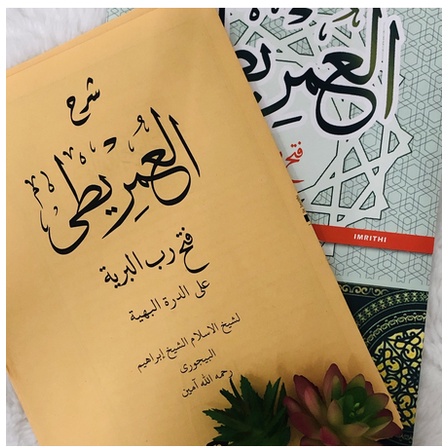 شرح
العمريطى
فتح رب البرية
على الدرة البهية
لشيخ الاسلام الشيخ إبراهيم
البيجورى
رحمه الله آمين
العمريطى
فتح
IMRITHI